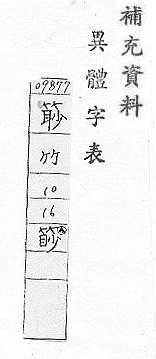 補充資料
異體字表
09877
竹
10
16